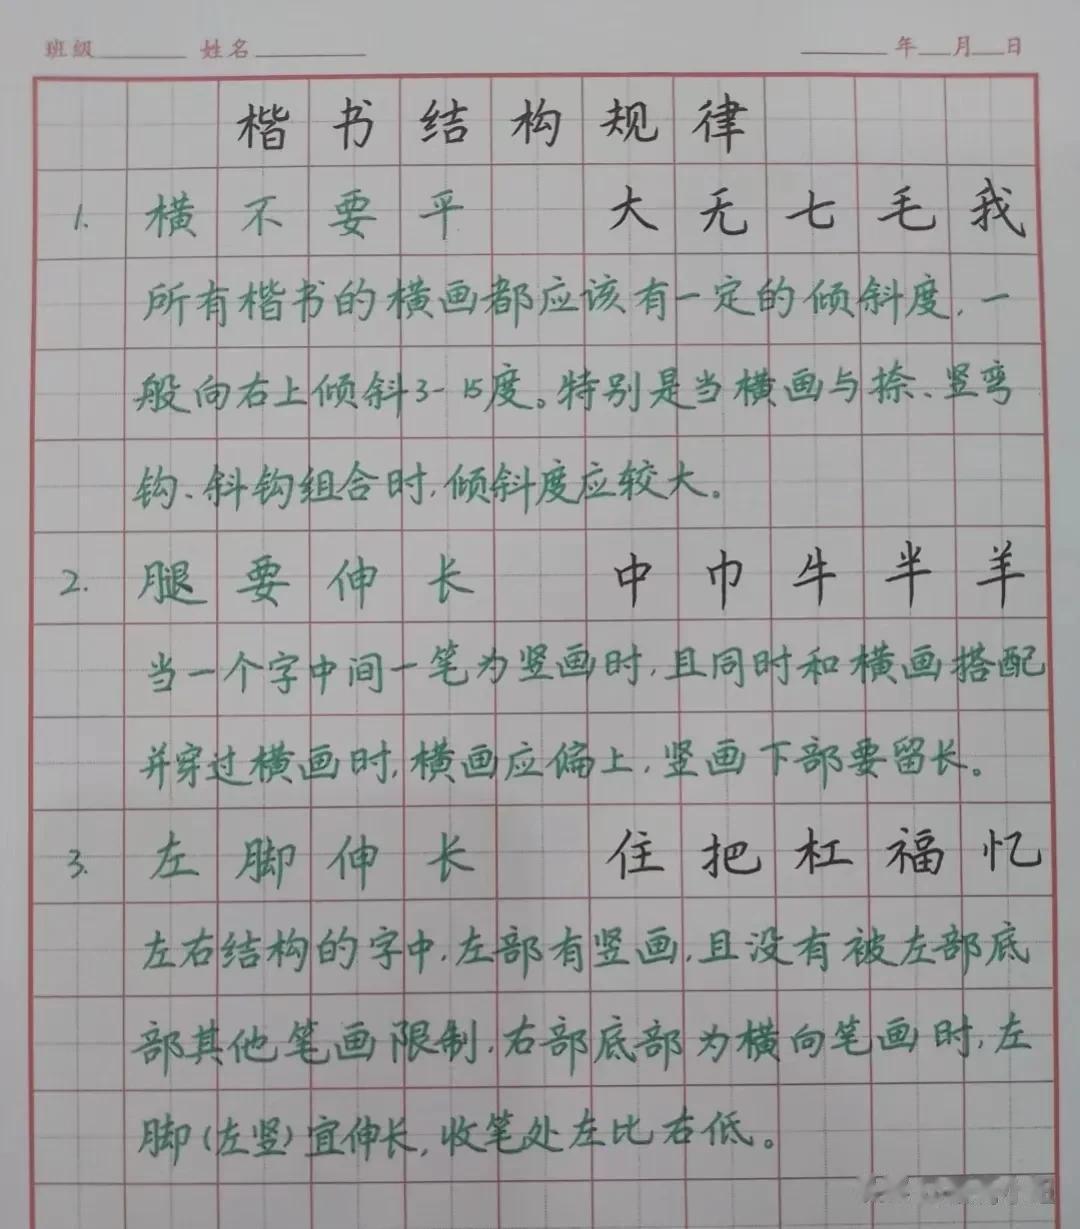 班级 姓名 年 月 日
楷书结构规律
1. 横不要平 大无七毛我
所有楷书的横画都应该有一定的倾斜度,一
般向右上倾斜3-15度。特别是当横画与捺、竖弯
钩、斜钩组合时,倾斜度应较大。
2. 腿要伸长 中巾牛半羊
当一个字中间一笔为竖画时,且同时和横画搭配
并穿过横画时,横画应偏上,竖画下部要留长。
3. 左脚伸长 住把杠福忆
左右结构的字中,左部有竖画,且没有被左部底
部其他笔画限制,右部底部为横向笔画时,左
脚(左竖)宜伸长,收笔处左比右低。